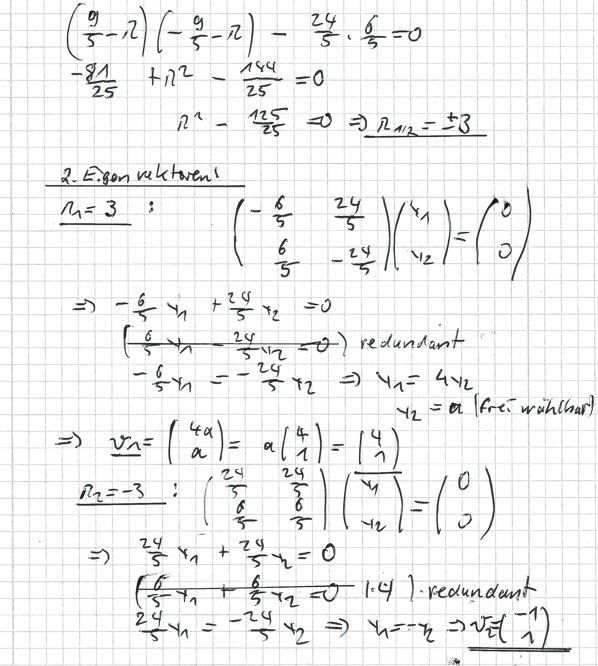 (9/5 - λ) (-9/5 - λ) - 24/5 · 6/5 = 0
-81/25 + λ² - 144/25 = 0
λ² - 125/25 = 0 ⇒ λ1/2 = ±3
2. Eigenvektoren:
λ1 = 3 : (-6/5 24/5; 6/5 -24/5) (x1; x2) = (0; 0)
⇒ -6/5 x1 + 24/5 x2 = 0
(6/5 x1 - 24/5 x2 = 0) redundant
-6/5 x1 = -24/5 x2 ⇒ x1 = 4x2
x2 = a (frei wählbar)
⇒ v1 = (4a; a) = a (4; 1) = (4; 1)
λ2 = -3 : (24/5 24/5; 6/5 6/5) (x1; x2) = (0; 0)
⇒ 24/5 x1 + 24/5 x2 = 0
(6/5 x1 + 6/5 x2 = 0 |·4) · redundant
24/5 x1 = -24/5 x2 ⇒ x1 = -x2 ⇒ v2 = (-1; 1)